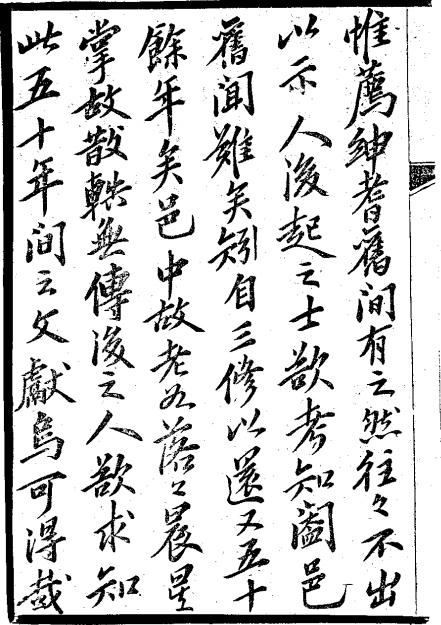 惟薦紳耆舊間有之然往々不出
以示人後起之士欲考知闔邑
舊聞難矣矧自三修以還又五十
餘年矣邑中故老為落々晨星
掌故散軼無傳後之人欲求知
此五十年间之文獻烏可得哉